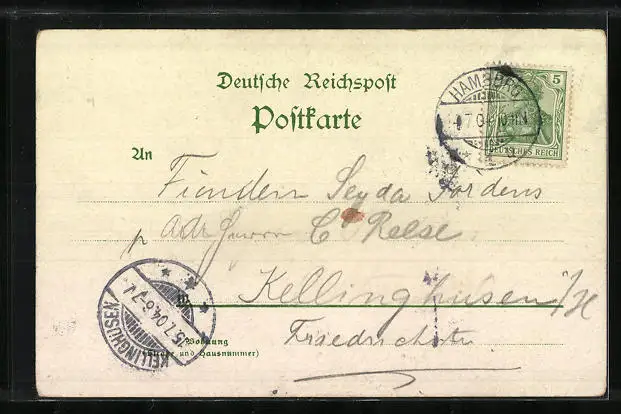 Deutsche Reichspost
Postkarte
HAMBURG
5
DEUTSCHES REICH
An
Seyda Jordens
Adr Herrn C Reese
Kellinghusen i/H
Friedrichstr
KELLINGHUSEN
15.7.04.6-7
Wohnung
(Straße und Hausnummer)